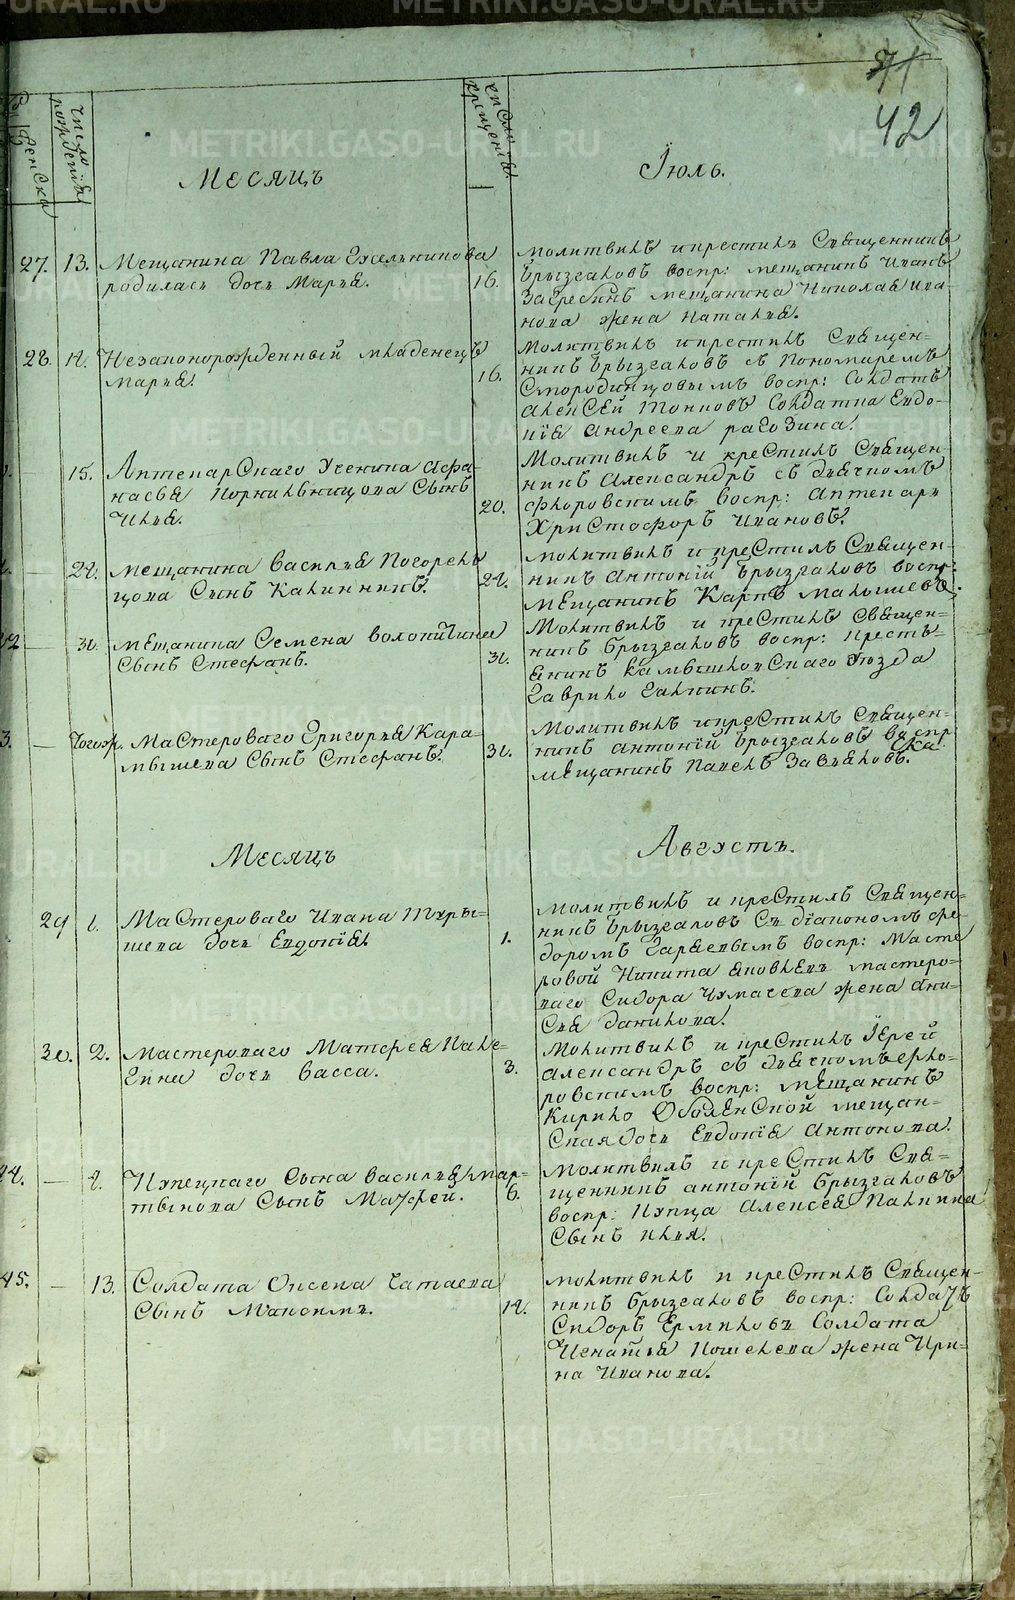 42
Женска
число рожденія
Месяцъ
число крещенія
Іюль.
27. 13. Мещанина Павла
родилась дочь Марія.
16.
Молитвилъ и крестилъ Священникъ
Брызгаловъ воспр: мещанинъ Иванъ
Загребинъ мещанина Николая Ива-
нова жена Наталія.
28. 14. Незаконорожденный младенецъ
Марія.
16.
Молитвилъ и крестилъ Священ-
никъ Брызгаловъ съ Пономаремъ
Смородинцовымъ воспр: Солдатъ
Алексей Солдатка Евдо-
кія Андреева
15. Аптекарскаго Ученика Афа-
насья Сынъ
Илія.
20.
Молитвилъ и крестилъ Священ-
никъ Александръ съ дьячкомъ
Флоровскимъ воспр: Аптекарь
Христофоръ Ивановъ.
22. Мещанина Василія Погорель
цова Сынъ Калинникъ.
22.
Молитвилъ и крестилъ Священ-
никъ Антоній Брызгаловъ воспр:
Мещанинъ Карпъ Малышевъ.
30. Мещанина Семена
Сынъ Стефанъ.
30.
Молитвилъ и крестилъ Священ-
никъ Брызгаловъ воспр: Кресть-
янинъ Камышловскаго Уезда
Гаврило Галкинъ.
Тогожъ. Мастероваго Григорія Кара-
мышева Сынъ Стефанъ.
30.
Молитвилъ и крестилъ Священ-
никъ Антоній Брызгаловъ воспр
Мещанинъ Павелъ Завьяловъ.
Месяцъ
Августъ.
29 1. Мастероваго Ивана
дочь Евдокія
1.
Молитвилъ и крестилъ Священ-
никъ Брызгаловъ Съ діакономъ Фе-
доромъ воспр: Масте
ровой Никита Яковлевъ мастеро-
ваго Сидора Чумачева жена Ани-
сья Данилова.
30. 2. Мастероваго Матфея
дочь Васса.
3.
Молитвилъ и крестилъ Іерей
Александръ съ дьячкомъ Фло-
ровскимъ воспр: мещанинъ
Кирило Оболенской мещан-
ская дочь Евдокія Антонова.
44. 2. Купецкаго Сына Василія Мар-
тьянова Сынъ Матфей.
6.
Молитвилъ и крестилъ Свя-
щенникъ Антоній Брызгаловъ
воспр: Купца Алексея Палкина
Сынъ Илія.
45. 13. Солдата
Сынъ Максимъ.
14.
Молитвилъ и крестилъ Священ-
никъ Брызгаловъ воспр: Солдатъ
Сидоръ Ермиловъ Солдата
Игнатія Кошелева жена Ири-
на Иванова.
METRIKI.GASO-URAL.RU